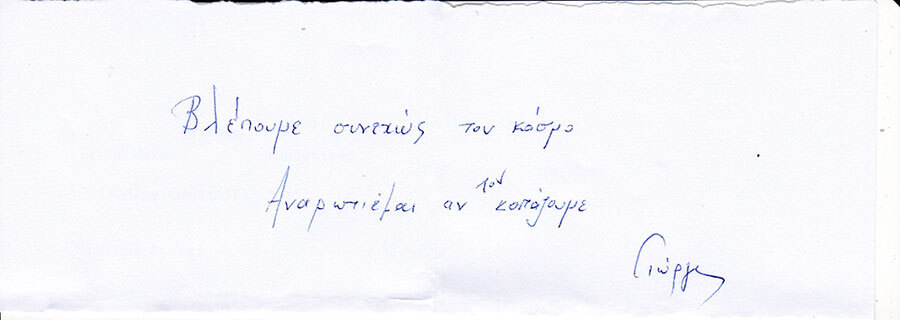 Βλέπουμε συνεχώς τον κόσμο
Αναρωτιέμαι αν τον κοιτάζουμε
Γιώργος